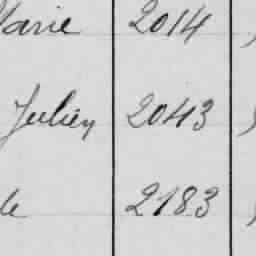 Marie 2014
Julien 2043
le 2183